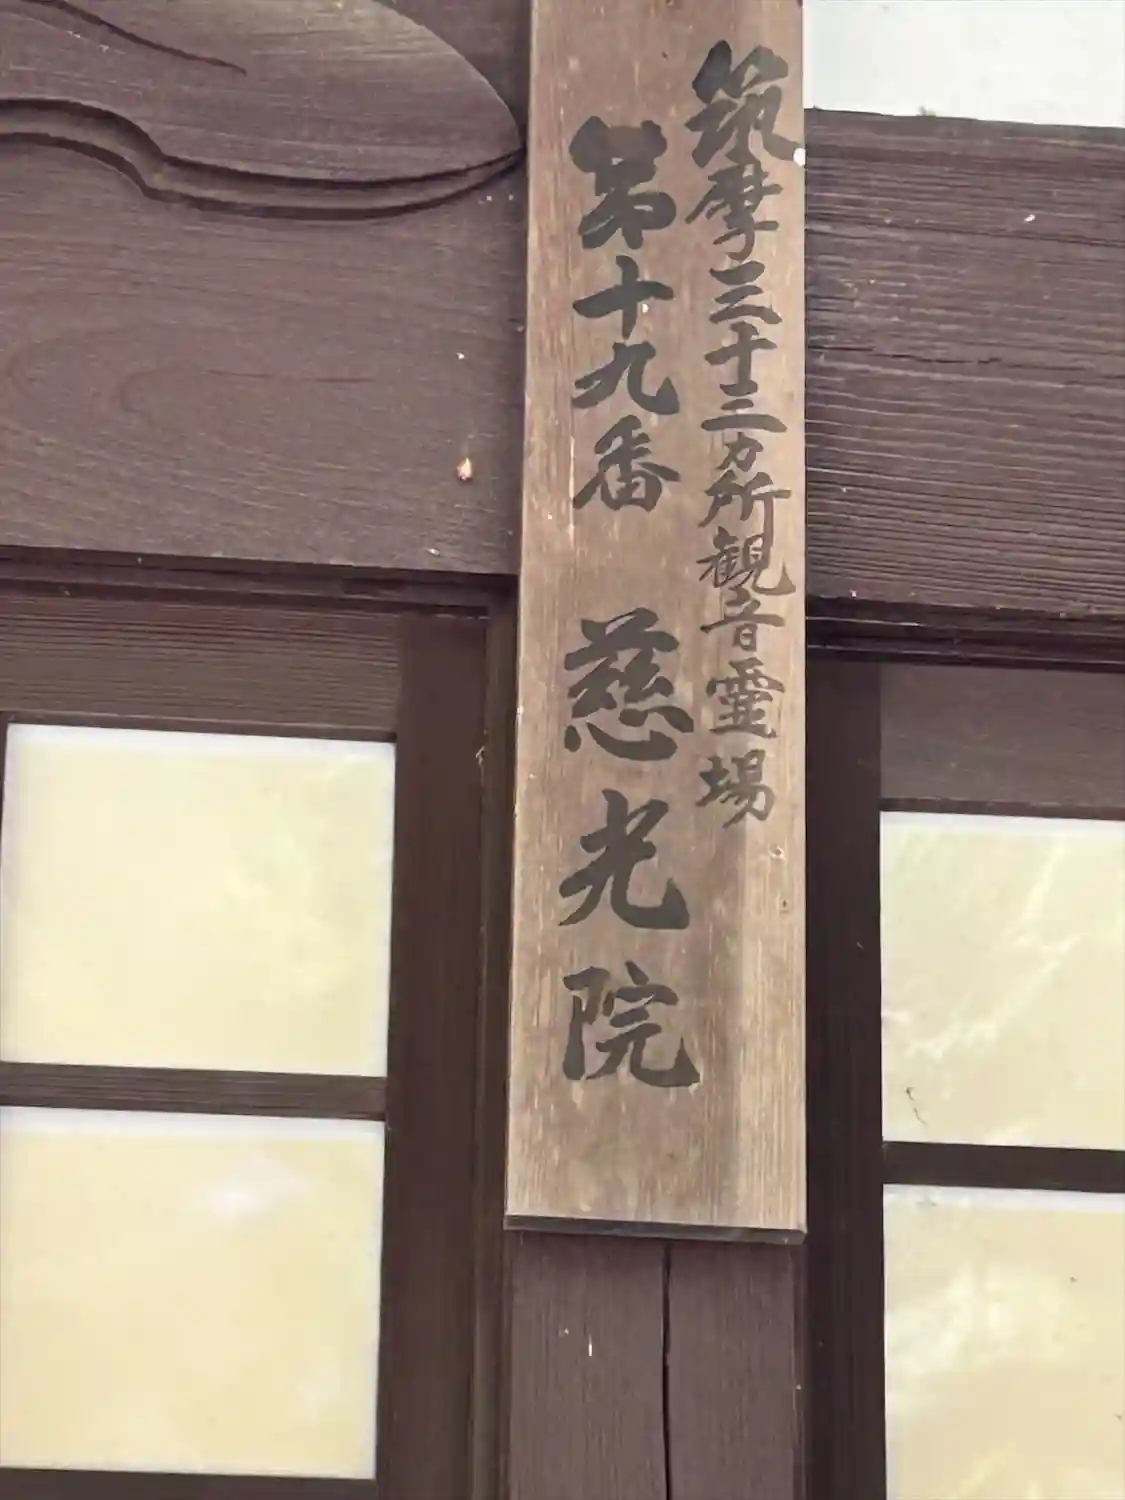 筑摩三十三カ所観音霊場
第十九番 慈光院